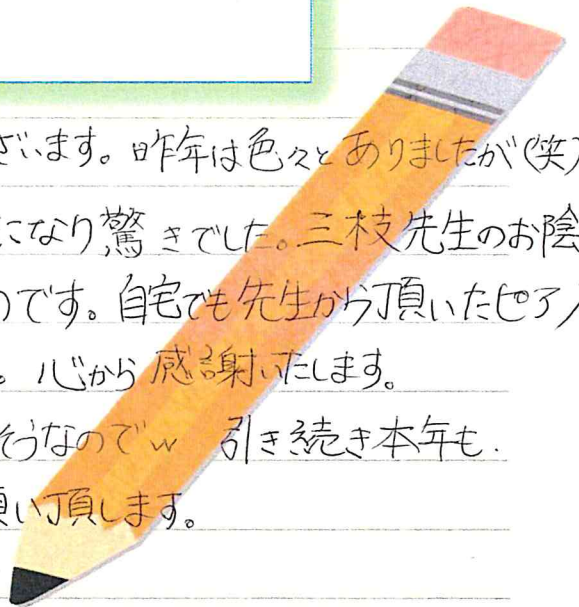 ざいます。昨年は色々とありましたが(笑)
になり驚きでした。三枝先生のお陰
のです。自宅でも先生から頂いたピアノ
。心から感謝いたします。
そうなのでw 引き続き本年も.
願い頂します。